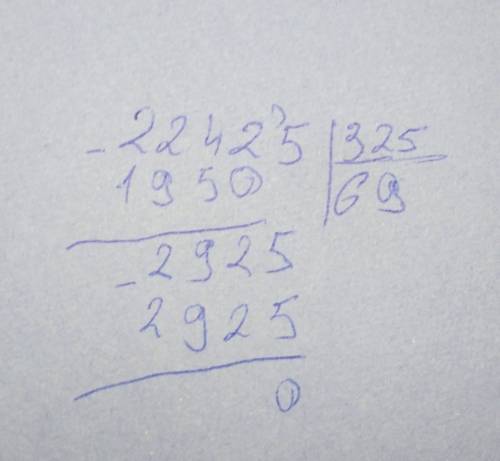 -22425 | 325
1950 | 69
-2925
2925
0